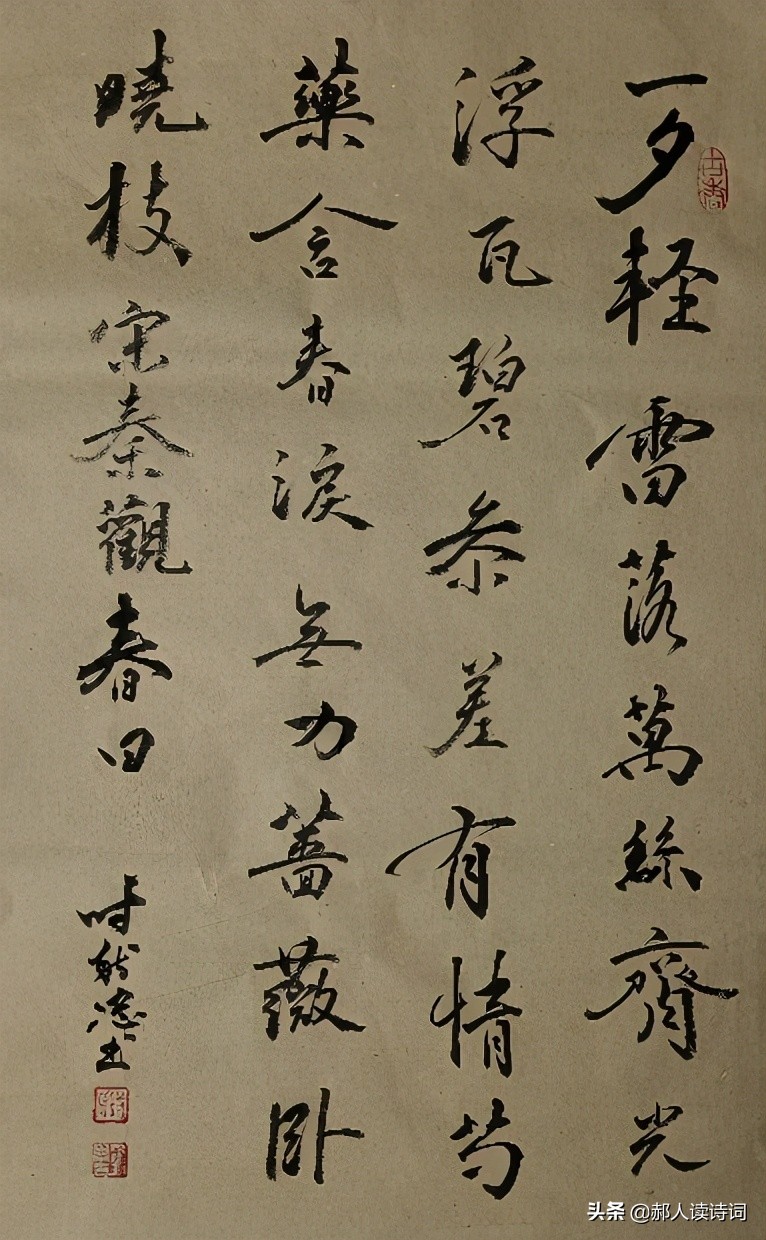 一夕軽雷落萬絲齊光
浮瓦碧参差有情芍
藥含春淚無力薔薇卧
曉枝宋秦觀春日
头条 @郝人读诗词